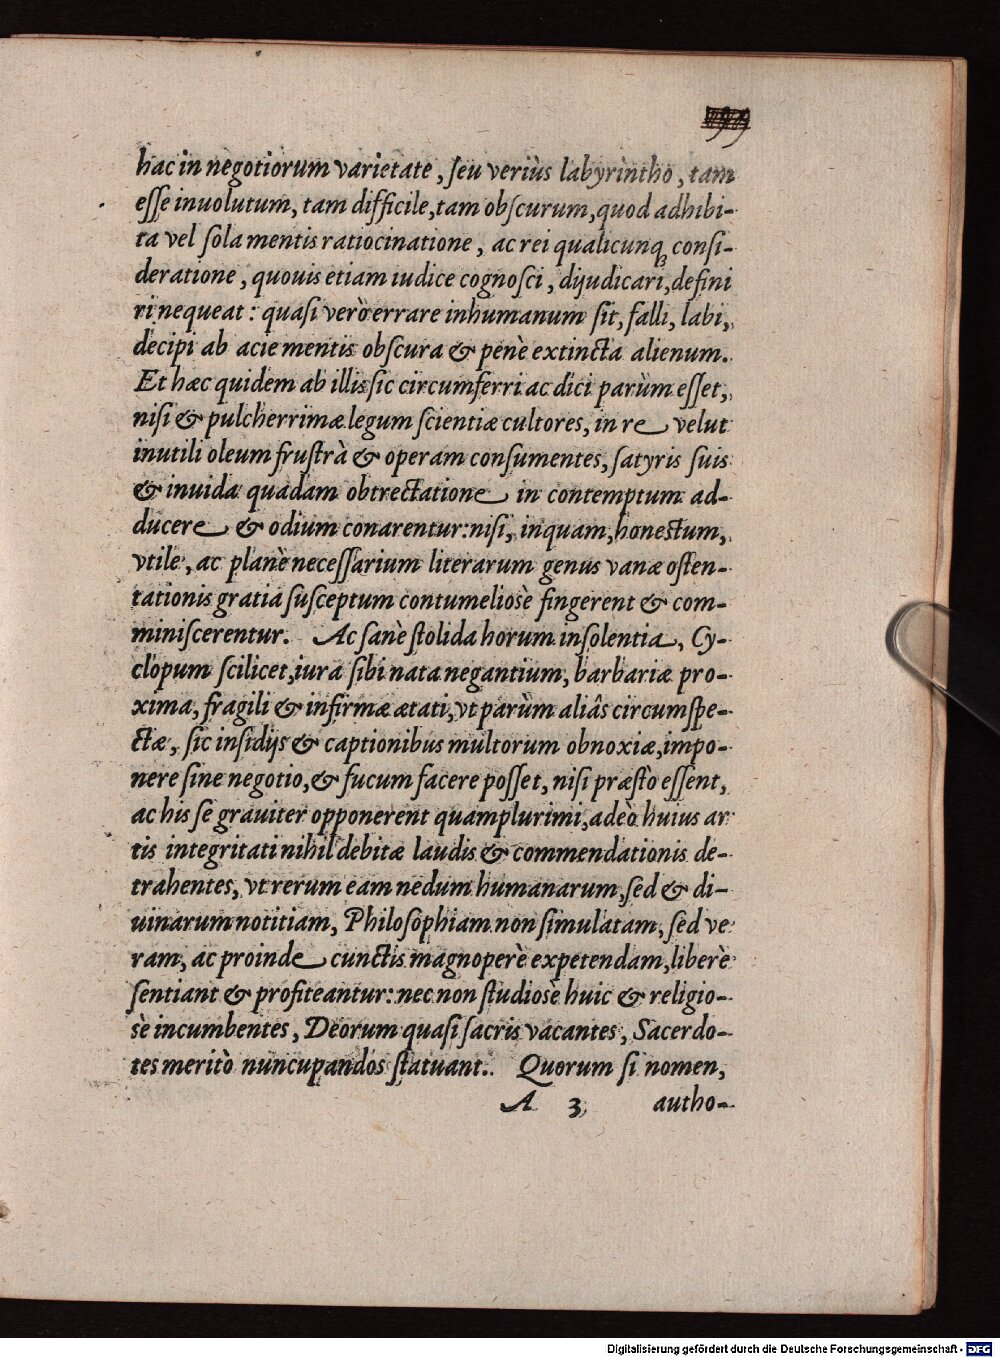 hac in negotiorum varietate, ſeu veriùs labyrintho, tam
eſſe inuolutum, tam difficile, tam obſcurum, quod adhibi-
ta vel ſola mentis ratiocinatione, ac rei qualicunqꝫ conſi-
deratione, quouis etiam iudice cognoſci, dijudicari, defini
ri nequeat: quaſi verò errare inhumanum ſit, falli, labi,
decipi ab acie mentis obſcura & penè extincta alienum.
Et hæc quidem ab illis ſic circumferri ac dici parùm eſſet,
niſi & pulcherrimæ legum ſcientiæ cultores, in re velut
inutili oleum fruſtrà & operam conſumentes, ſatyris ſuis
& inuida quadam obtrectatione in contemptum ad-
ducere & odium conarentur: niſi, inquam, honeſtum,
vtile, ac planè neceſſarium literarum genus vanæ oſten-
tationis gratia ſuſceptum contumelioſè fingerent & com-
miniſcerentur. Ac ſanè ſtolida horum inſolentia, Cy-
clopum ſcilicet, iura ſibi nata negantium, barbariæ pro-
xima, fragili & infirmæ ætati, vt parùm aliâs circumſpe-
ctæ, ſic inſidijs & captionibus multorum obnoxiæ, impo-
nere ſine negotio, & fucum facere poſſet, niſi præſtò eſſent,
ac his ſe grauiter opponerent quamplurimi, adeò huius ar
tis integritati nihil debitæ laudis & commendationis de-
trahentes, vt rerum eam nedum humanarum, ſed & di-
uinarum notitiam, Philoſophiam non ſimulatam, ſed ve
ram, ac proinde cunctis magnoperè expetendam, liberè
ſentiant & profiteantur: nec non ſtudioſè huic & religio-
sè incumbentes, Deorum quaſi ſacris vacantes, Sacerdo-
tes meritò nuncupandos ſtatuant. Quorum ſi nomen,
A 3 autho-
Digitalisierung gefördert durch die Deutsche Forschungsgemeinschaft - DFG